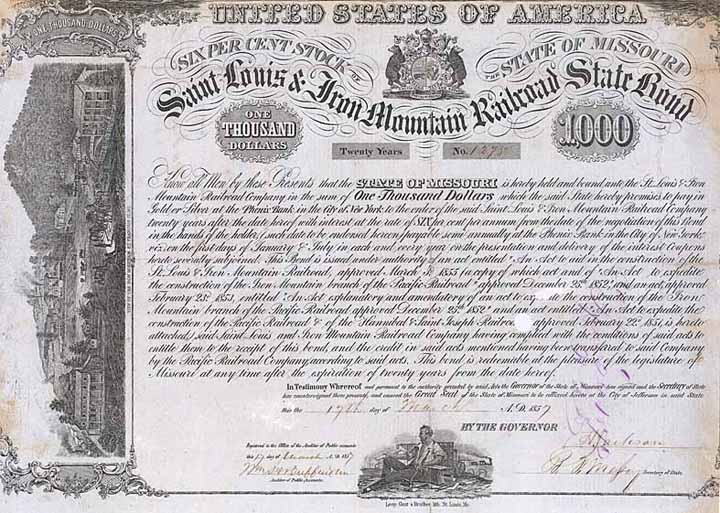 UNITED STATES OF AMERICA
ONE THOUSAND DOLLARS
SIX PER CENT STOCK OF THE STATE OF MISSOURI
Saint Louis & Iron Mountain Railroad State Bond
ONE THOUSAND DOLLARS
1,000
Twenty Years No. 1275
Know all Men by these Presents that the STATE OF MISSOURI is hereby held and bound unto the St. Louis & Iron
Mountain Railroad Company in the sum of One Thousand Dollars which the said State hereby promises to pay in
Gold or Silver at the Phenix Bank in the City of New York to the order of the said Saint Louis & Iron Mountain Railroad Company
twenty years after the date hereof with interest at the rate of SIX per cent per annum from the date of the negotiation of this Bond
in the hands of the holder, such date to be endorsed hereon, payable semi annually at the Phenix Bank in the City of New York,
viz: on the first days of January & July in each and every year on the presentation and delivery of the interest Coupons
hereto severally subjoined. This Bond is issued under authority of an act entitled "An Act to aid in the construction of the
St. Louis & Iron Mountain Railroad, approved March 3d 1855 (a copy of which act and of "An Act to expedite
the construction of the Iron Mountain branch of the Pacific Railroad" approved December 25th 1852, and an act, approved
February 23d 1853, entitled "An Act explanatory and amendatory of an act to the construction of the Iron
Mountain branch of the Pacific Railroad approved December 25th 1852" and an act entitled "An Act to expedite the
construction of the Pacific Railroad & of the Hannibal & Saint Joseph approved February 22d 1851, is hereto
attached,) said Saint Louis and Iron Mountain Railroad Company having complied with the conditions of said acts to
entitle them to the receipt of this bond, and the credit in said acts mentioned having been transferred to said Company
by the Pacific Railroad Company according to said acts. This bond is redeemable at the pleasure of the legislature of
Missouri at any time after the expiration of twenty years from the date hereof.
In Testimony Whereof and pursuant to the authority granted by said Acts the Governor of the State of Missouri has signed and the Secretary of State
has countersigned these presents, and caused the Great Seal of the State of Missouri to be affixed hereto at the City of Jefferson in said State
this the 17th day of March A.D. 1857
BY THE GOVERNOR
Registered in the Office of the Auditor of Public accounts
this 17 day of March A.D. 1857
Auditor of Public Accounts.
Secretary of State
Leop. Gast & Brother, lith. St. Louis, Mo.